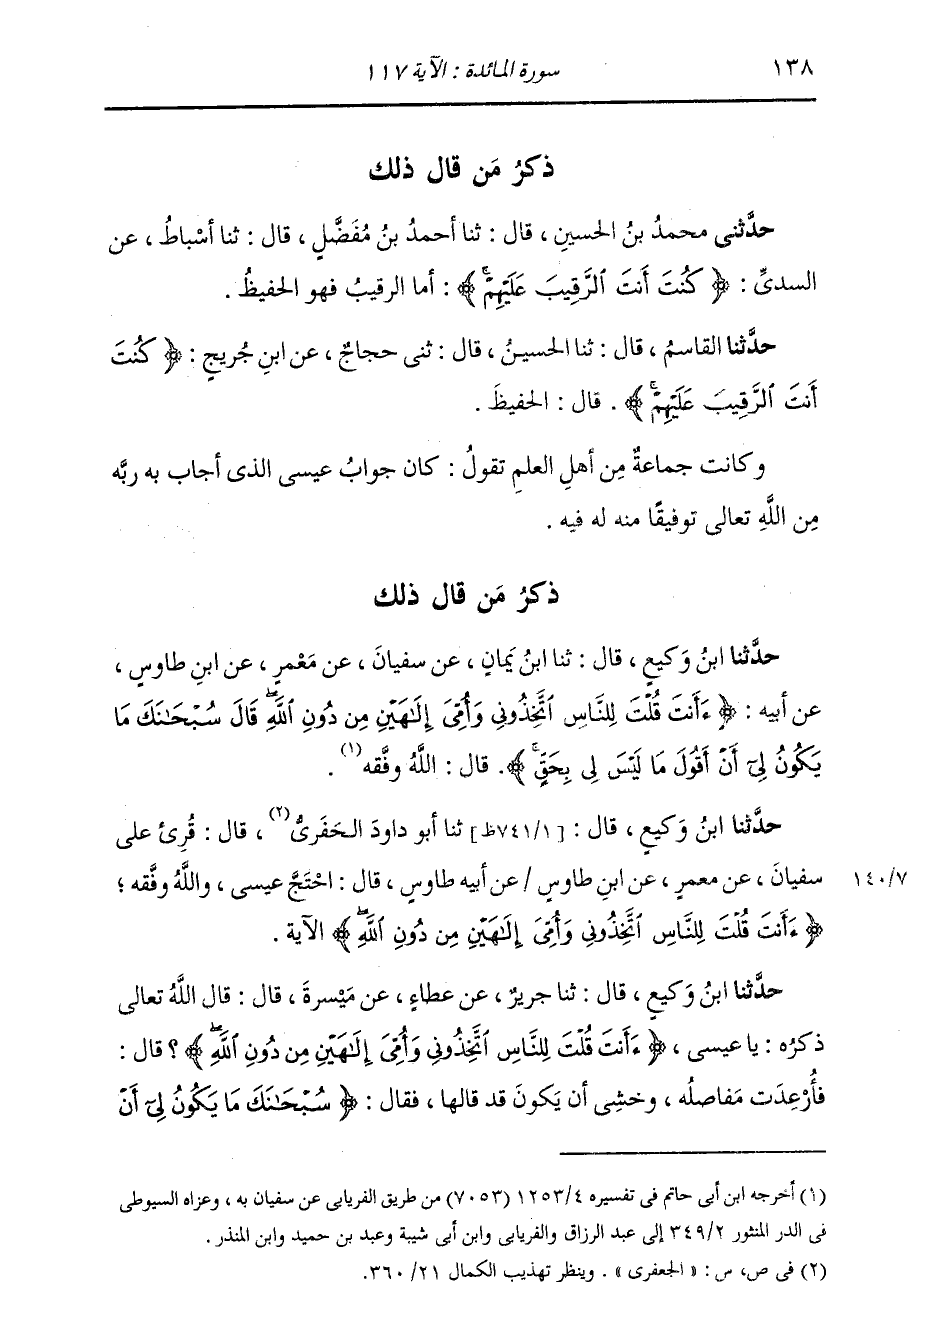 ١٣٨ سورة المائدة : الآية ١١٧
ذكرُ مَن قال ذلك
حدَّثنى محمدُ بنُ الحسينِ ، قال : ثنا أحمدُ بنُ مُفَضَّلٍ ، قال : ثنا أسْباطُ ، عن
السدىِّ : ﴿ كُنتَ أَنتَ ٱلرَّقِيبَ عَلَيْهِمْۚ ﴾ : أما الرقيبُ فهو الحفيظُ .
حدَّثنا القاسمُ ، قال : ثنا الحسينُ ، قال : ثنى حجاجٌ ، عن ابنِ جُريجٍ : ﴿ كُنتَ
أَنتَ ٱلرَّقِيبَ عَلَيْهِمْۚ ﴾ . قال : الحفيظَ .
وكانت جماعةٌ مِن أهلِ العلمِ تقولُ : كان جوابُ عيسى الذى أجاب به ربَّه
مِن اللَّهِ تعالى توفيقًا منه له فيه .
ذكرُ مَن قال ذلك
حدَّثنا ابنُ وَكيعٍ ، قال : ثنا ابنُ يَمانٍ ، عن سفيانَ ، عن مَعْمرٍ ، عن ابنِ طاوسٍ ،
عن أبيه : ﴿ ءَأَنتَ قُلْتَ لِلنَّاسِ ٱتَّخِذُونِى وَأُمِّىَ إِلَٰهَيْنِ مِن دُونِ ٱللَّهِۖ قَالَ سُبْحَٰنَكَ مَا
يَكُونُ لِىٓ أَنْ أَقُولَ مَا لَيْسَ لِى بِحَقٍّۚ ﴾. قال : اللَّهُ وفَّقه(١) .
حدَّثنا ابنُ وَكيعٍ ، قال : [٧٤١/١ظ] ثنا أبو داودَ الحَفَرىُّ(٢) ، قال : قُرِئ على
سفيانَ ، عن معمرٍ ، عن ابنِ طاوسٍ / عن أبيه طاوسٍ ، قال : احْتَجَّ عيسى ، واللَّهُ وفَّقه ؛ ١٤٠/٧
﴿ ءَأَنتَ قُلْتَ لِلنَّاسِ ٱتَّخِذُونِى وَأُمِّىَ إِلَٰهَيْنِ مِن دُونِ ٱللَّهِۖ ﴾ الآية .
حدَّثنا ابنُ وَكيعٍ ، قال : ثنا جريرٌ ، عن عطاءٍ ، عن مَيْسرةَ ، قال : قال اللَّهُ تعالى
ذكرُه : يا عيسى ، ﴿ ءَأَنتَ قُلْتَ لِلنَّاسِ ٱتَّخِذُونِى وَأُمِّىَ إِلَٰهَيْنِ مِن دُونِ ٱللَّهِۖ ﴾ ؟ قال :
فأُرْعِدَت مَفاصلُه ، وخشِى أن يَكونَ قد قالها ، فقال : ﴿ سُبْحَٰنَكَ مَا يَكُونُ لِىٓ أَنْ
(١) أخرجه ابن أبى حاتم فى تفسيره ١٢٥٣/٤ (٧٠٥٣) من طريق الفريابى عن سفيان به ، وعزاه السيوطى
فى الدر المنثور ٣٤٩/٢ إلى عبد الرزاق والفريابى وابن أبى شيبة وعبد بن حميد وابن المنذر .
(٢) فى ص، س : « الجعفرى » . وينظر تهذيب الكمال ٣٦٠/٢١.